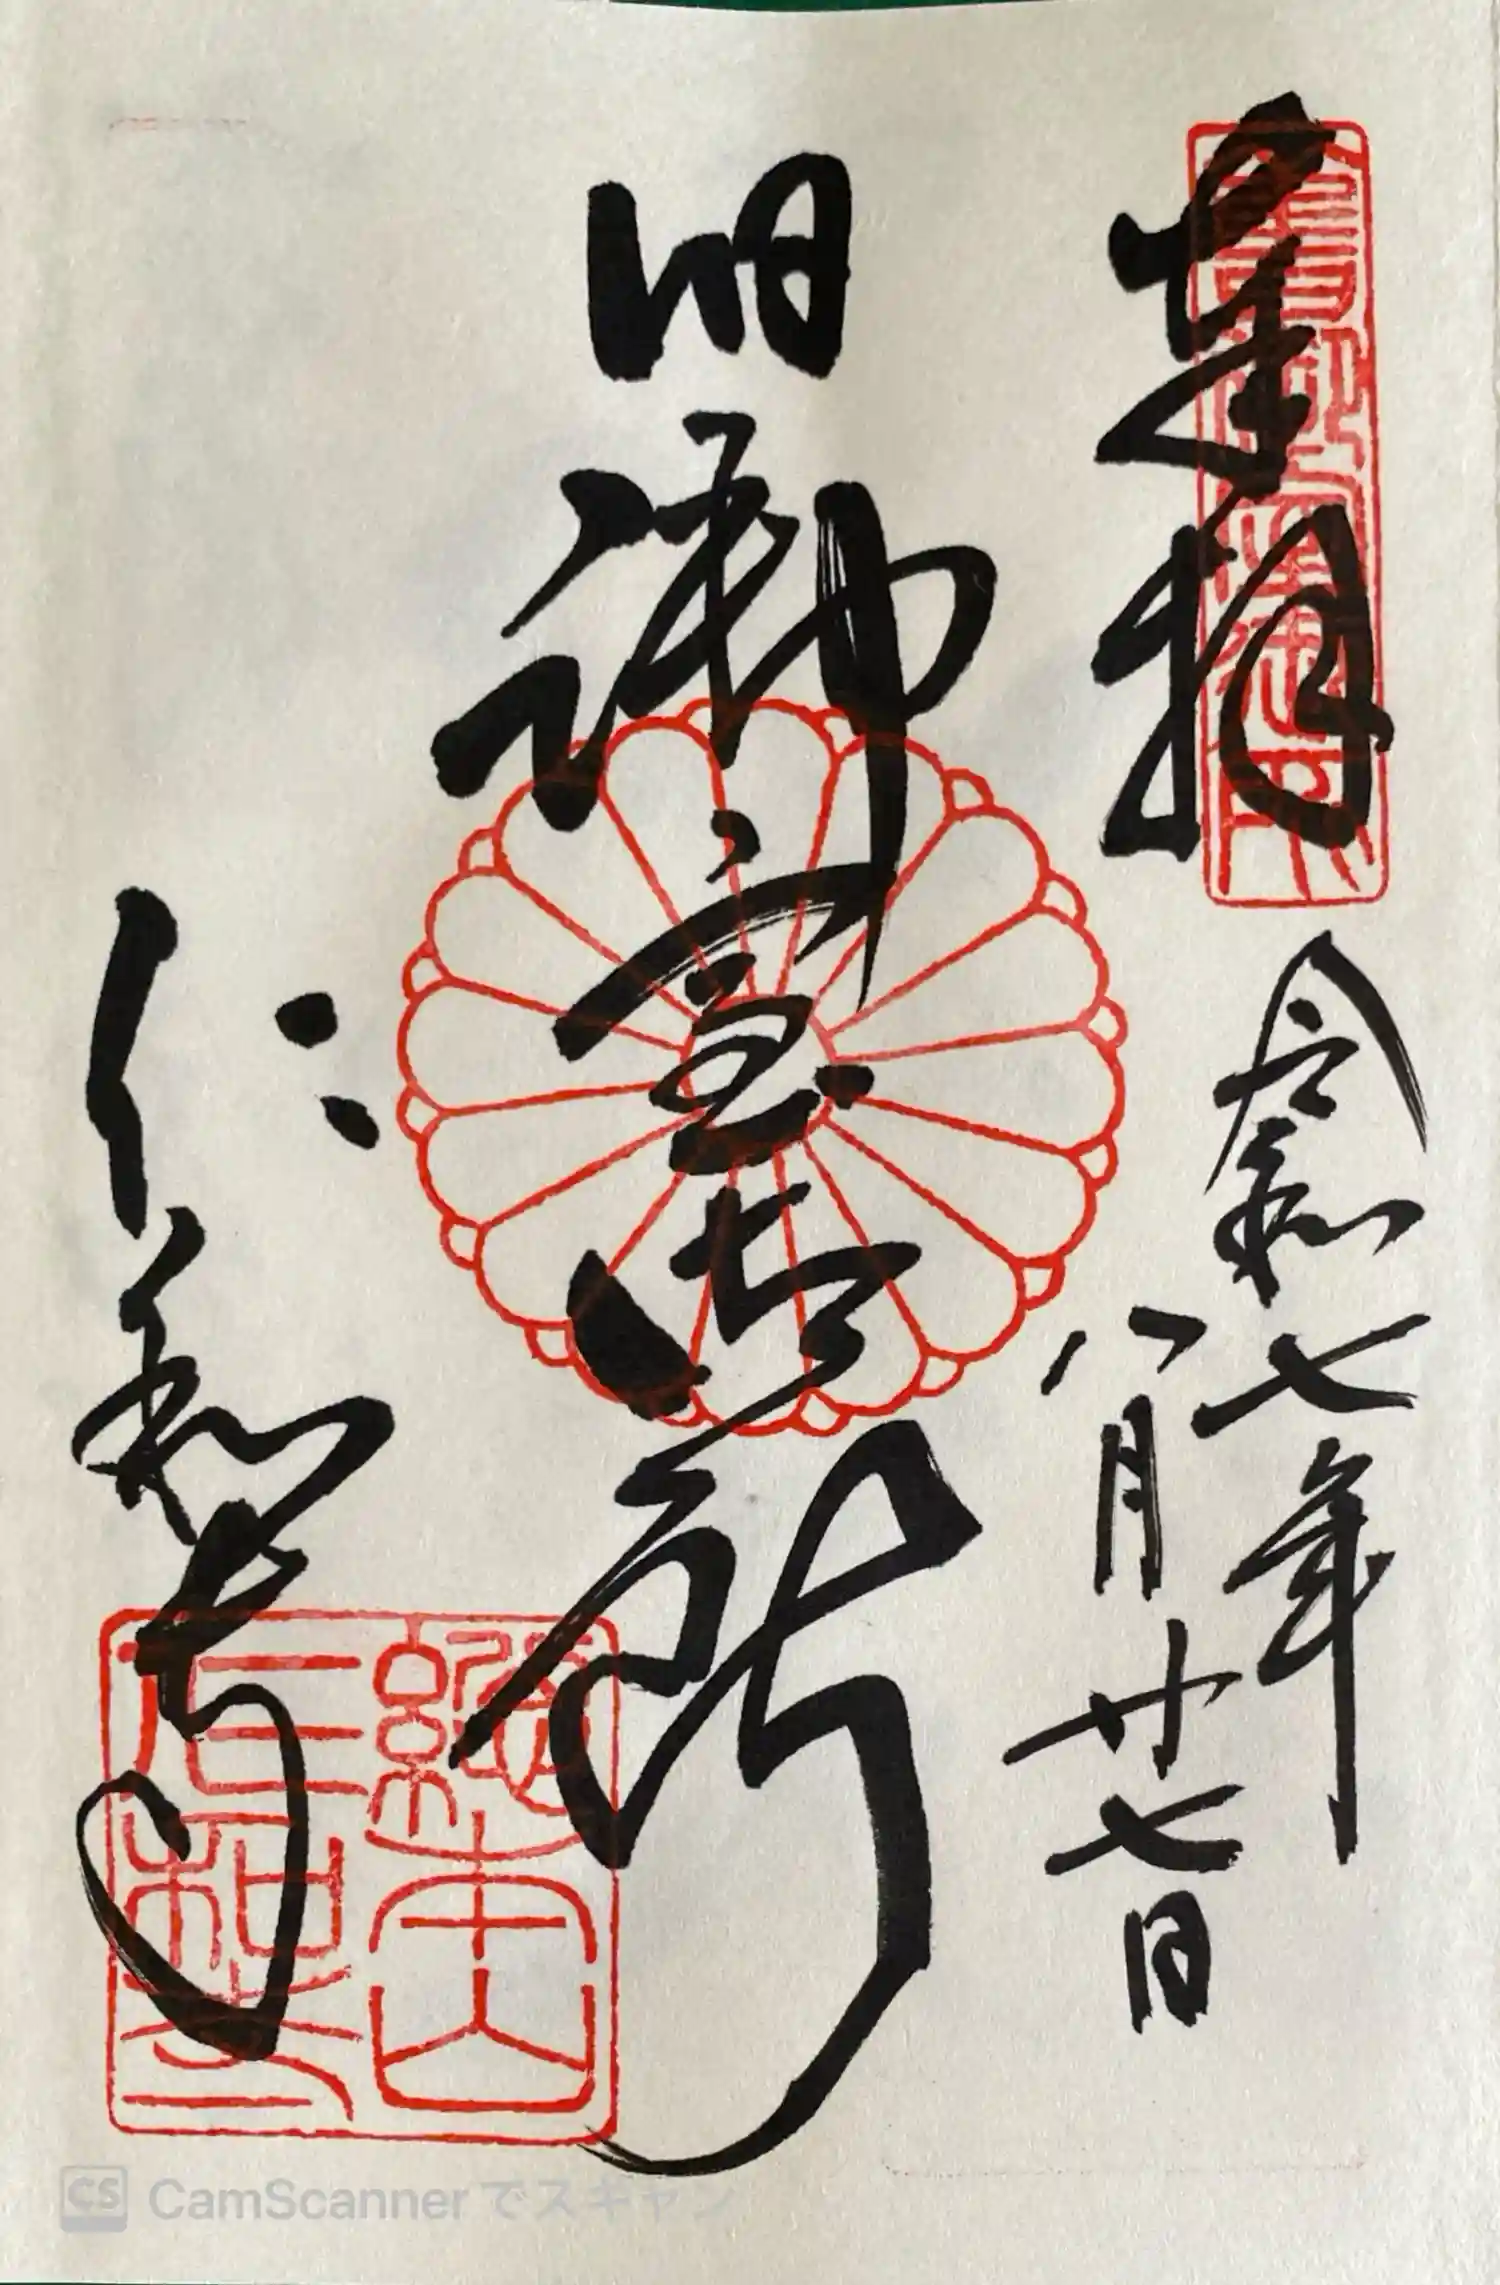 奉拝
令和七年
八月廿七日
旧御室御所
仁和寺
總本山
仁和寺
CS CamScannerでスキャン